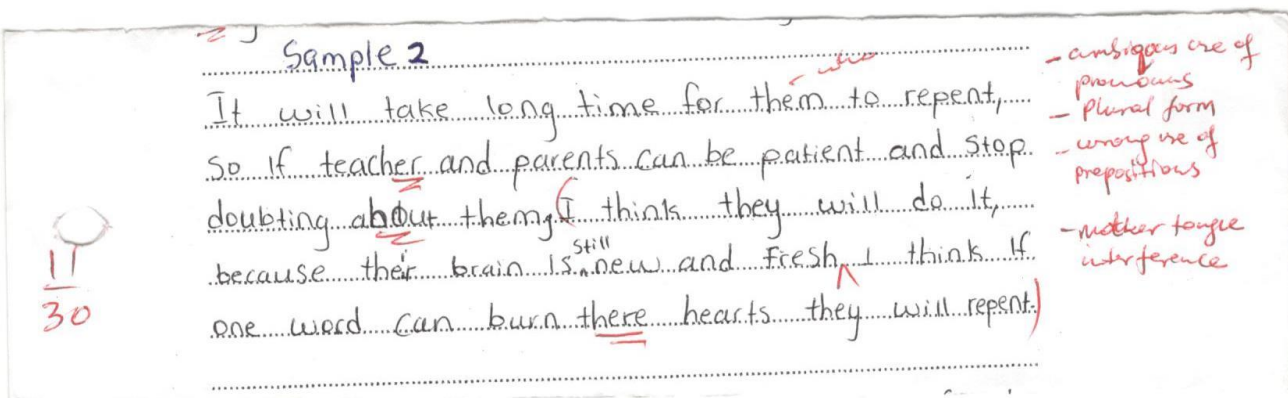 Sample 2
who
It will take long time for them to repent,
So if teacher and parents can be patient and stop
doubting about them, I think they will do it,
still
because their brain is new and fresh I think if
one word can burn there hearts they will repent.
- ambigous use of
pronouns
- Plural form
- wrong use of
prepositions
- mother tongue
interference
11
30